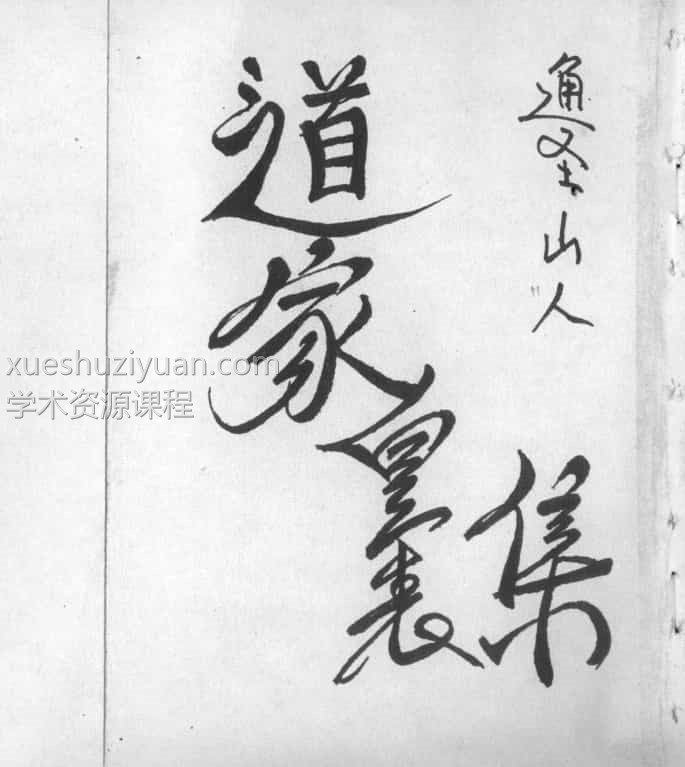 通圣山人
道家
集
xueshuziyuan.com
学术资源课程